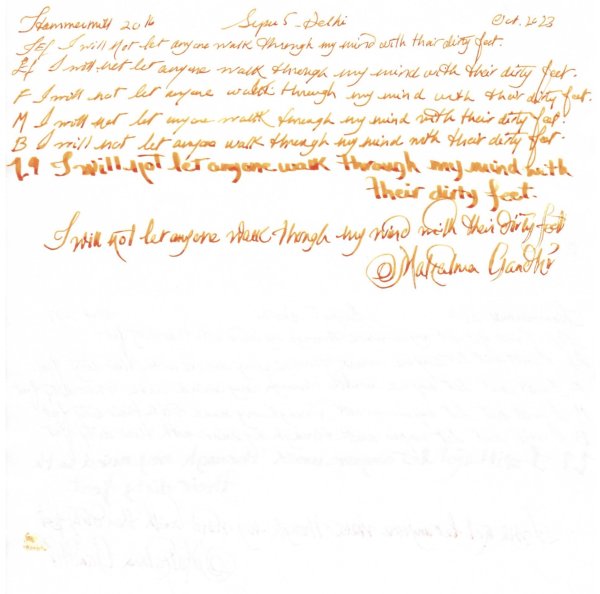 Hammermill 20 lb Super 5 Delhi Oct. 2023
EF I will not let anyone walk through my mind with their dirty feet.
EF I will not let anyone walk through my mind with their dirty feet.
F I will not let anyone walk through my mind with their dirty feet.
M I will not let anyone walk through my mind with their dirty feet.
B I will not let anyone walk through my mind with their dirty feet.
1.9 I will not let anyone walk through my mind with
their dirty feet.
I will not let anyone walk though my mind with their dirty feet
@Mahatma Gandhi